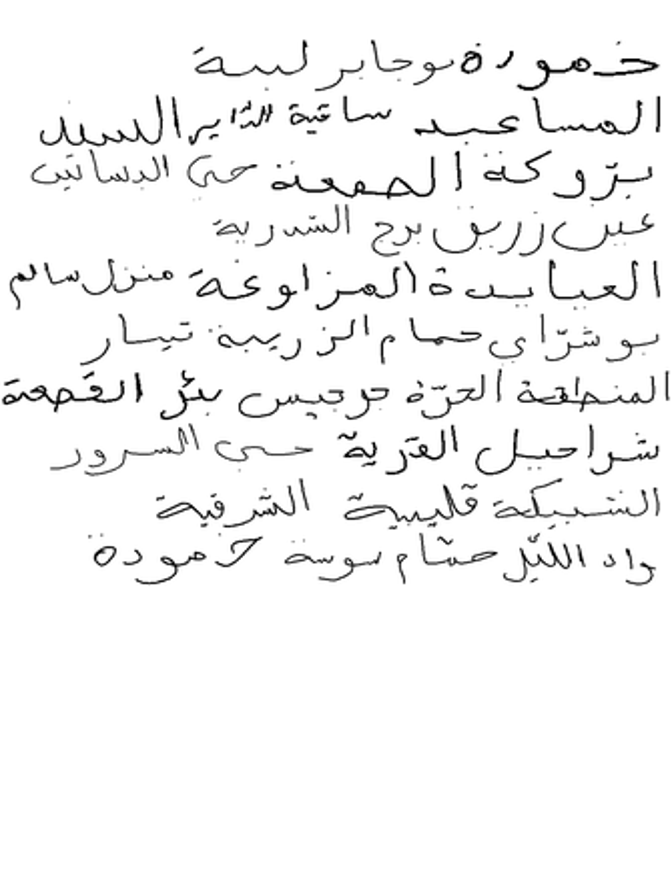 خمودة بوجابر لبنة
المساعيد ساقية الدّاير السند
برّوكة الصمعة حي البساتين
عين زريق برج السدرية
العبابدة المزاوغة منزل سالم
بوشرّاي حمام الزريبة تيبار
المنطقة الحرّة جرجيس بئر القصعة
شراحيل القرية حي السرور
الشبيكة قليبية الشرقية
واد الليّل حشّام سوسة خمودة